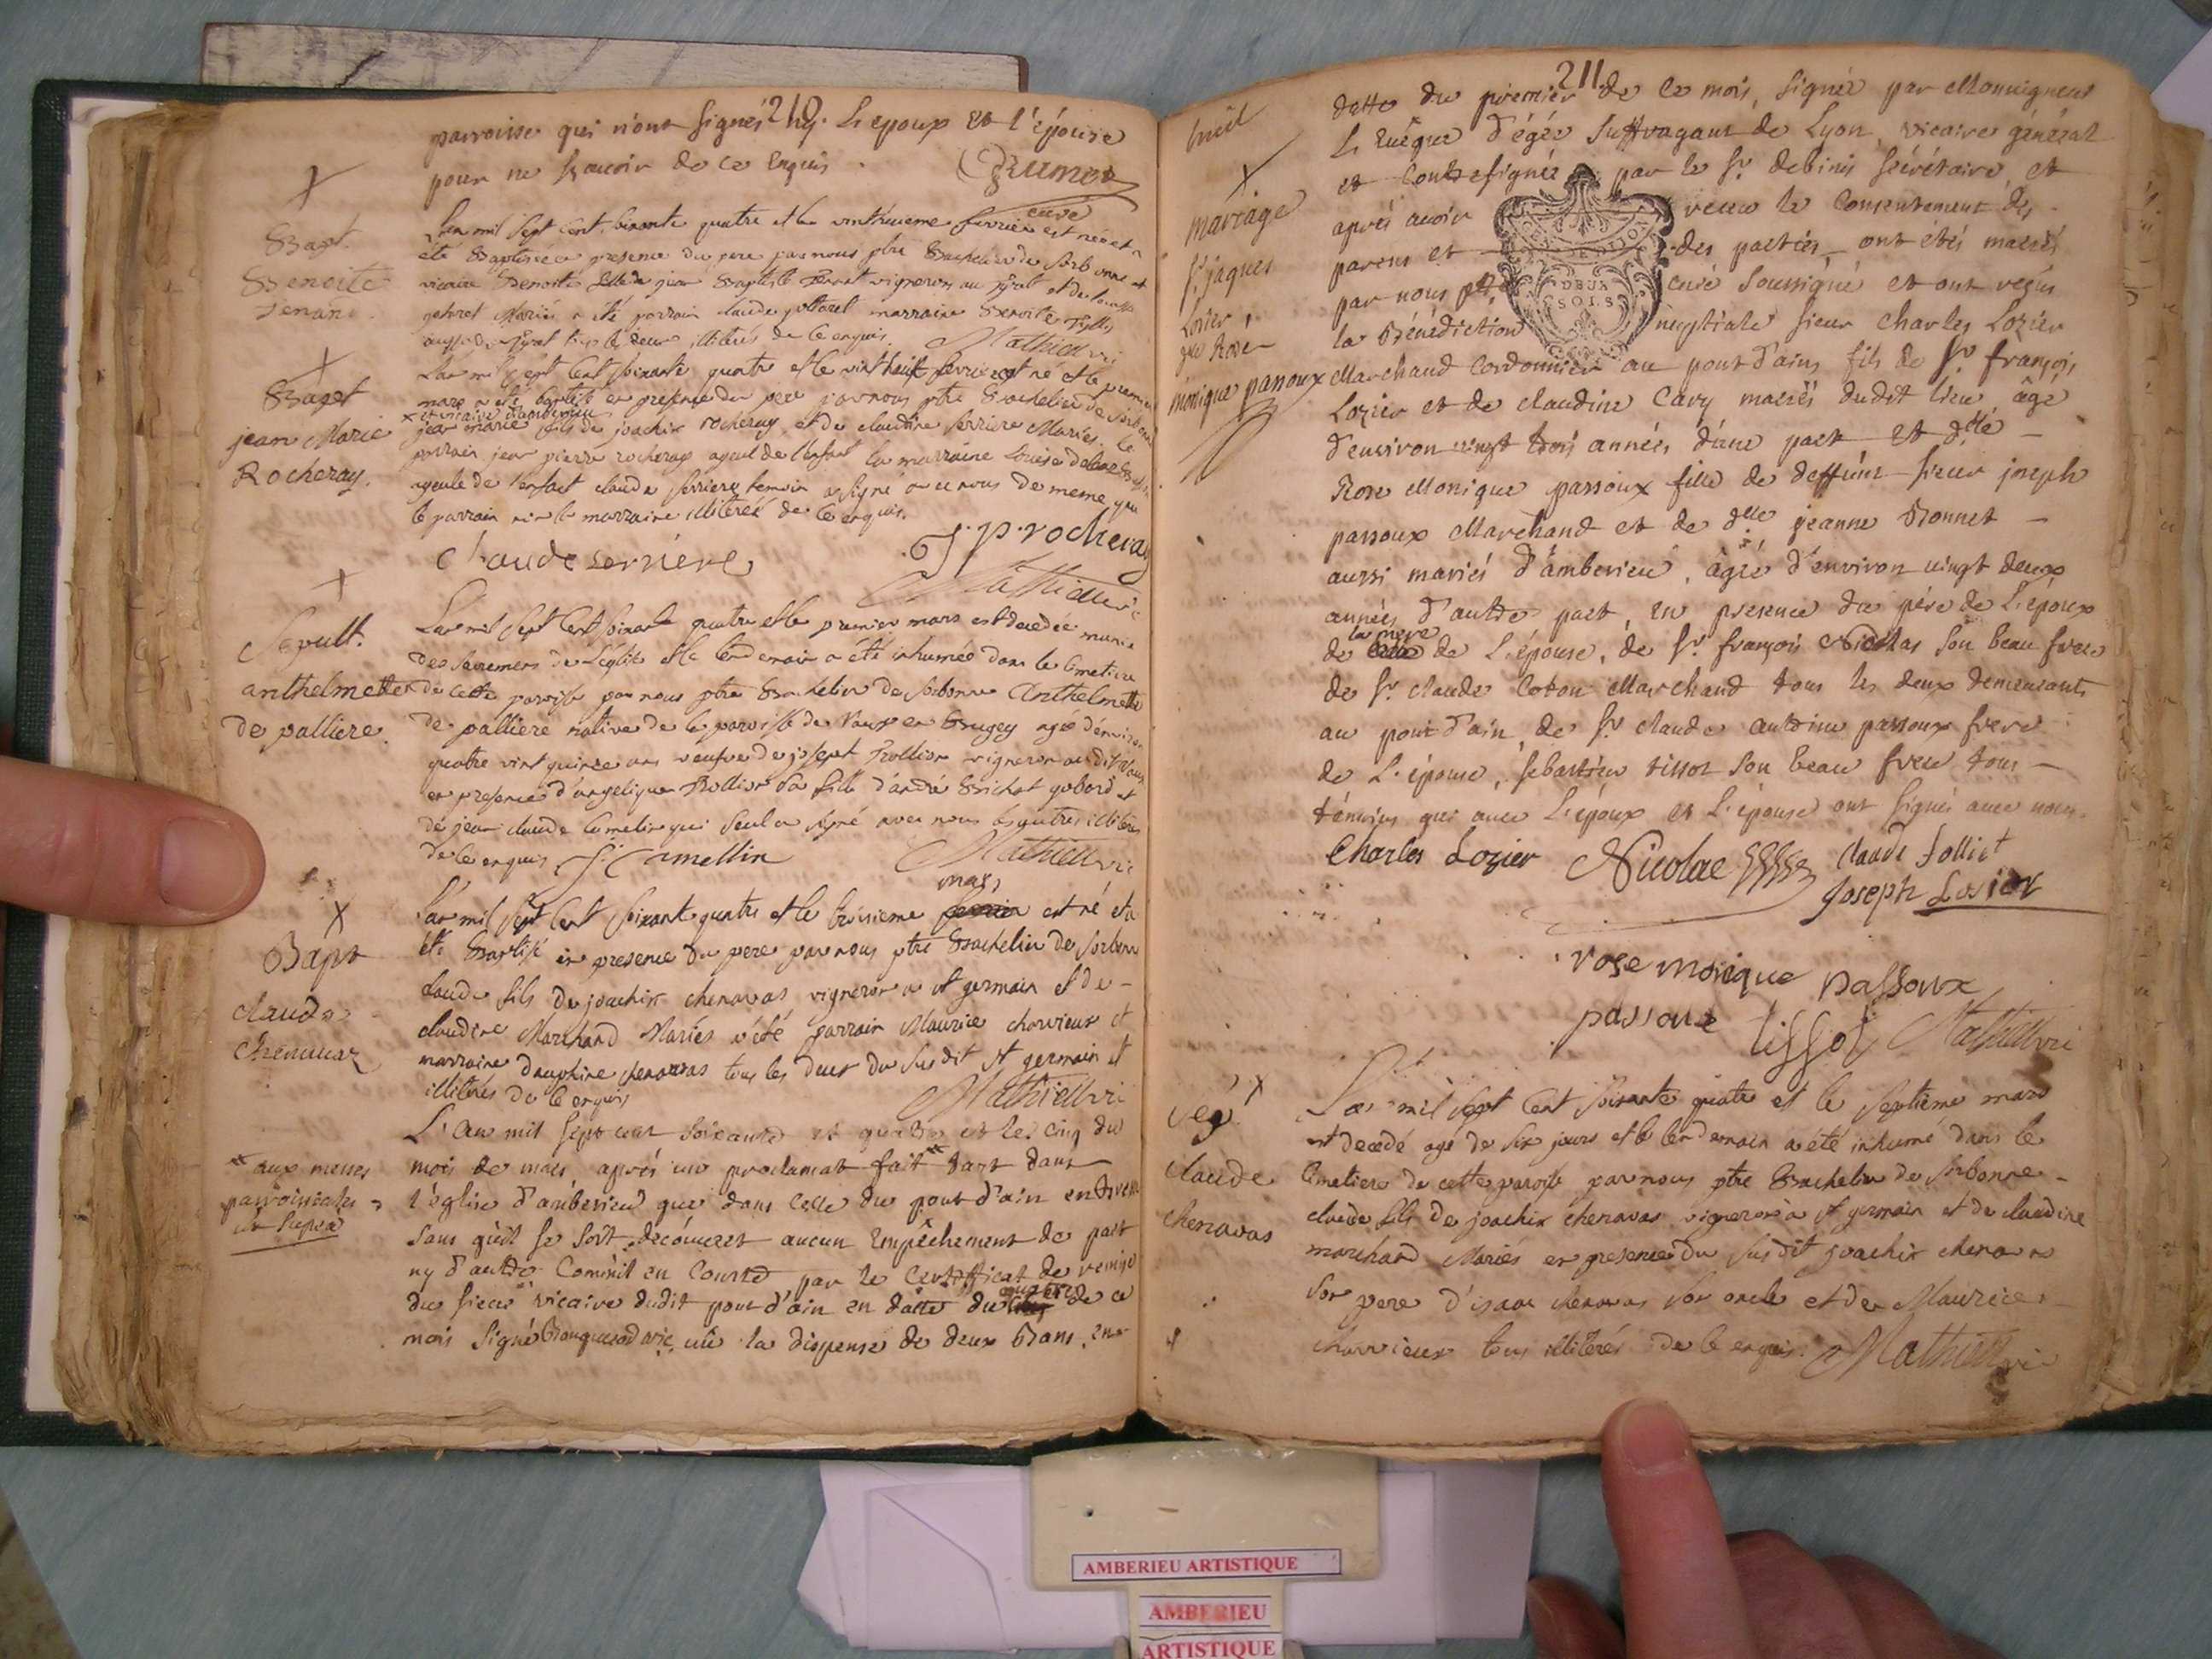 210.
parroisse qui n'ont signés L'epoux et l'épouse
pour ne sçavoir de ce enquis.
curé
X
Bapt.
Benoite
L'an mil sept cent soixante quatre et le vinthuitieme fevrier est née et a
été Baptisée en presence du pere par nous ptre Bachelier de Sorbonne et
vicaire Benoite fille de jean Baptiste vigneron au et de
mariés a été parrain claude marraine Benoite
tous les deux illitérés de ce enquis. Mathieu vi
X
Bapt
jean Marie
Rocheray.
L'an mil sept cent soixante quatre et le vint huit fevrier est né et le premier
mars a été baptisé en presence du pere par nous ptre Bachelier de Sorbonne
x et vicaire d'amberieu
jean marie fils de joachin rocheray et de claudine serriere Mariés. le
parrain jean pierre rocheray ayeul de l'enfant la marraine Louise
ayeule de l'enfant claude serriere temoin a signé avec nous de meme que
le parrain non la marraine illiterée de ce enquis.
claude serriere
J. p. rocheray
Mathieu vic
X
Sepult.
anthelmette
de palliere.
L'an mil sept cent soixante quatre et le premier mars est decedée munie
des sacremens de l'église et le lendemain a été inhumée dans le cimetiere
de cette paroisse par nous ptre Bachelier de Sorbonne Anthelmette
de palliere native de la paroisse de Vaux en Bugey agée d'environ
quatre vint quinze ans veufve de joseph Rollion vigneron au dit Vaux
en presence d'angelique Rollion sa fille d'andré Brichot et
de jean claude camelin qui seul a signé avec nous les autres illiterés
de ce enquis J. Camellin Mathieu vic
X
Bapt
claude
chenavaz
mars
L'an mil sept cent soixante quatre et le troisieme fevrier est né et a
été Baptisé en presence du pere par nous ptre Bachelier de Sorbonne
claude fils de joachin chenavas vigneron a st germain et de
claudine Marchand Mariés a été parrain Maurice charvieux et
marraine dauphine chenavas tous les deux du susdit st germain et
illiterés de ce enquis Mathieu vic
L'an mil sept cent soixante et quatre et le cinq du
mois de mars, aprés un proclamat fait tant dans
aux messes
parroissiales
l'église d'ambérieu que dans celle du pont d'ain
sans qu'il se soit découvert aucun Empêchement de part
ny d'autre Comm'il en Conste par le Certifficat de remise
quatre
du sieur vicaire dudit pont d'ain en datte du cinq de ce
mois signé vic. vû la dispense de deux Bans, en
211.
huit
datte du premier de ce mois, signée par Monseigneur
L'Evêque d'égée suffragant de Lyon, vicaire général
et Contresignée par le Sr. debinis secrétaire et
X.
mariage
Sr. jaques
Lozier,
Rose
monique passoux
aprés avoir reçu le Consentement des
parens et des parties, ont etés mariés
par nous ptre curé soussigné et ont reçus
la Bénédiction nuptiale sieur charles Lozier
DEUX
SOLS
Marchand Cordonnier au pont d'ains fils de Sr. françois
Lozier et de claudine Cary mariés dudit lieu, âgé
d'environ vingt trois années d'une part et dlle
Rose Monique passoux fille de deffunt sieur joseph
passoux Marchand et de dlle jeanne Bonnet
aussi mariés d'amberieu, âgée d'environ vingt deux
années d'autre part, en presence du pére de L'époux
la mere
de celle de L'épouse, de Sr. françois Nicolas son beau frere
de Sr. claude Coton Marchand tous les deux demeurants
au pont d'ain, de Sr. claude antoine passoux frere
de L'épouse, sebastien tissot son beau frere tous
témoins qui avec L'époux et L'épouse ont signés avec nous.
Charles Lozier Nicolas claude folliet
Joseph Losier
rose monique passoux
passoux tissot Mathieu vic
X
Sep.
claude
chenavas
L'an mil sept cent soixante quatre et le septieme mars
est decedé agé de six jours et le lendemain a été inhumé dans le
cimetiere de cette paroisse par nous ptre Bachelier de Sorbonne
claude fils de joachin chenavas vigneron a st germain et de claudine
marchand Mariés en presence du susdit joachin chenavas
son pere d'isaac chenavas son oncle et de Maurice
charvieux tous illiterés de ce enquis. Mathieu vic
AMBERIEU ARTISTIQUE
AMBERIEU
ARTISTIQUE